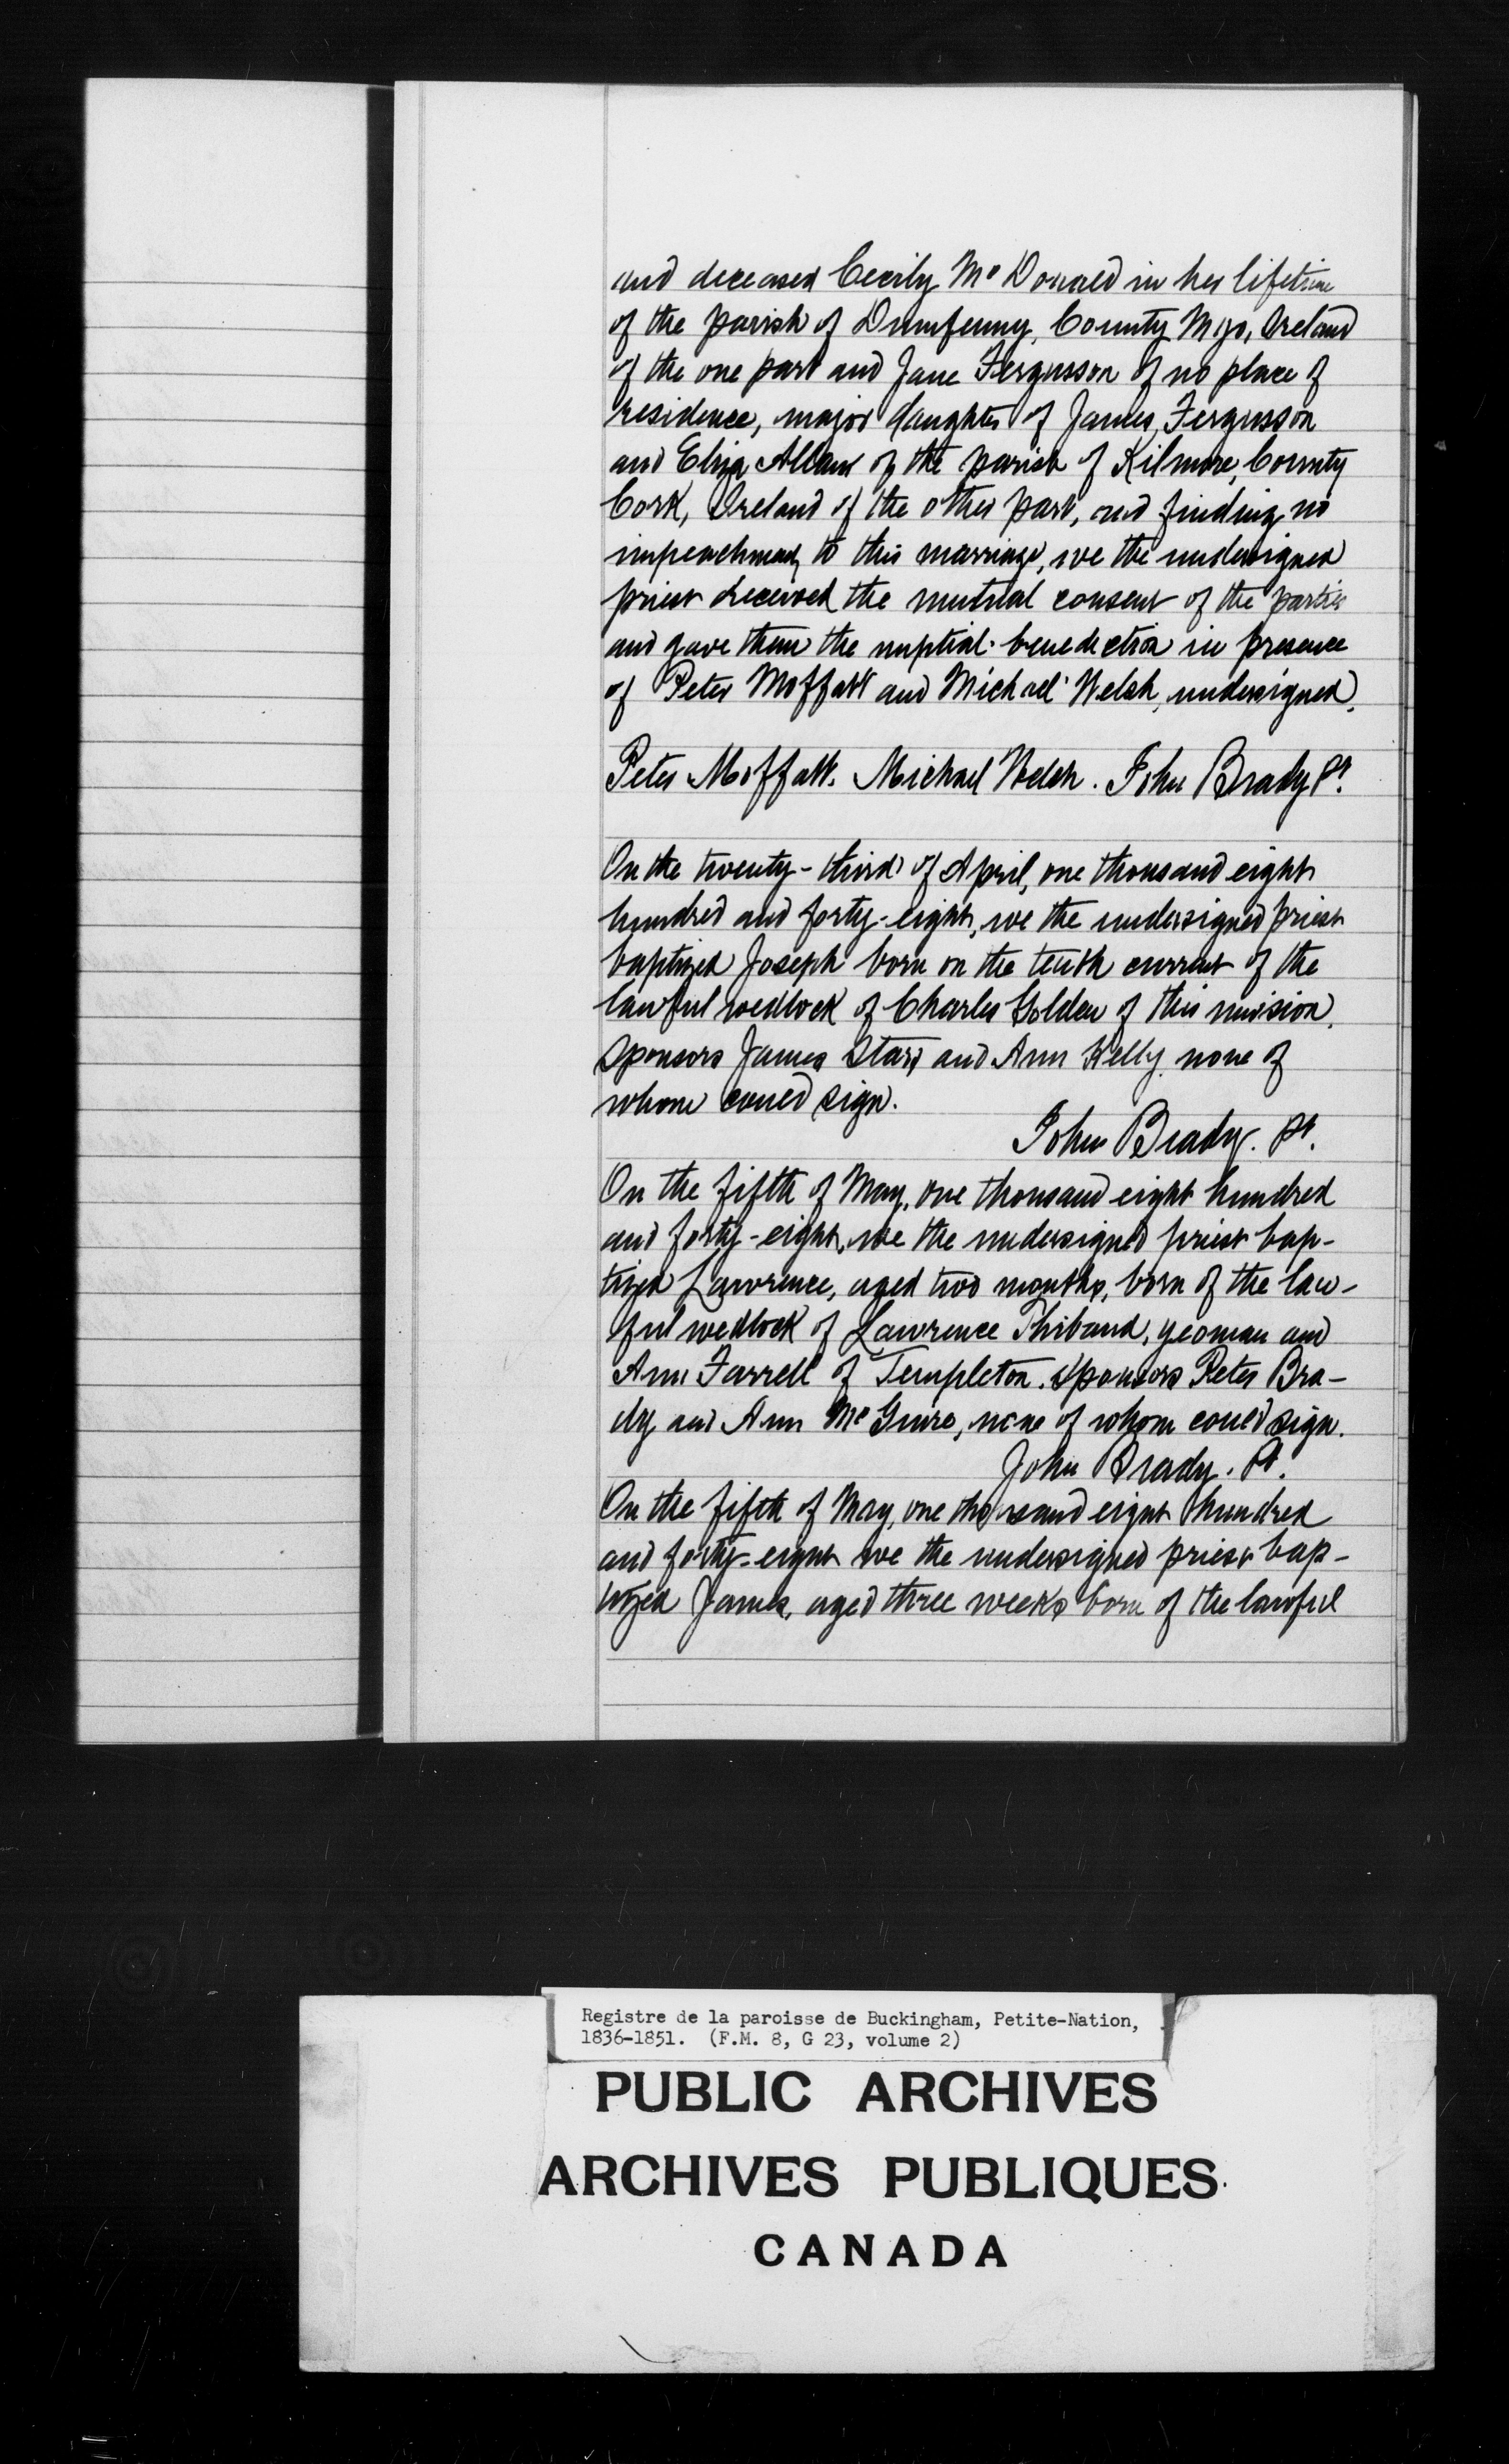 and deceased Cecily Mc Donald in her lifetime
of the parish of Dumfenny, County Myo, Ireland
of the one part and Jane Fergusson of no place of
residence, major daughter of James Fergusson
and Eliza of the parish of Kilmore, County
Cork, Ireland of the other part, and finding no
to this marriage, we the undersigned
priest received the mutual consent of the parties
and gave them the nuptial benediction in presence
of Peter Moffatt and Michael Welsh, undersigned.
Peter Moffatt. Michael Welsh. John Brady Pt.
On the twenty-third of April, one thousand eight
hundred and forty-eight, we the undersigned priest
baptized Joseph born on the tenth current of the
lawful wedlock of Charles Golden of this mission.
Sponsors James Starr and Ann Kelly none of
whom could sign.
John Brady. Pt.
On the fifth of May, one thousand eight hundred
and forty-eight, we the undersigned priest bap-
tized Lawrence, aged two months, born of the law-
ful wedlock of Lawrence Thibaud, yeoman and
Ann Farrell of Templeton. Sponsors Peter Bra-
dy and Ann McGuire, none of whom could sign.
John Brady. Pt.
On the fifth of May, one thousand eight hundred
and forty-eight we the undersigned priest bap-
tized James, aged three weeks born of the lawful
Registre de la paroisse de Buckingham, Petite-Nation,
1836-1851. (F.M. 8, G 23, volume 2)
PUBLIC ARCHIVES
ARCHIVES PUBLIQUES
CANADA